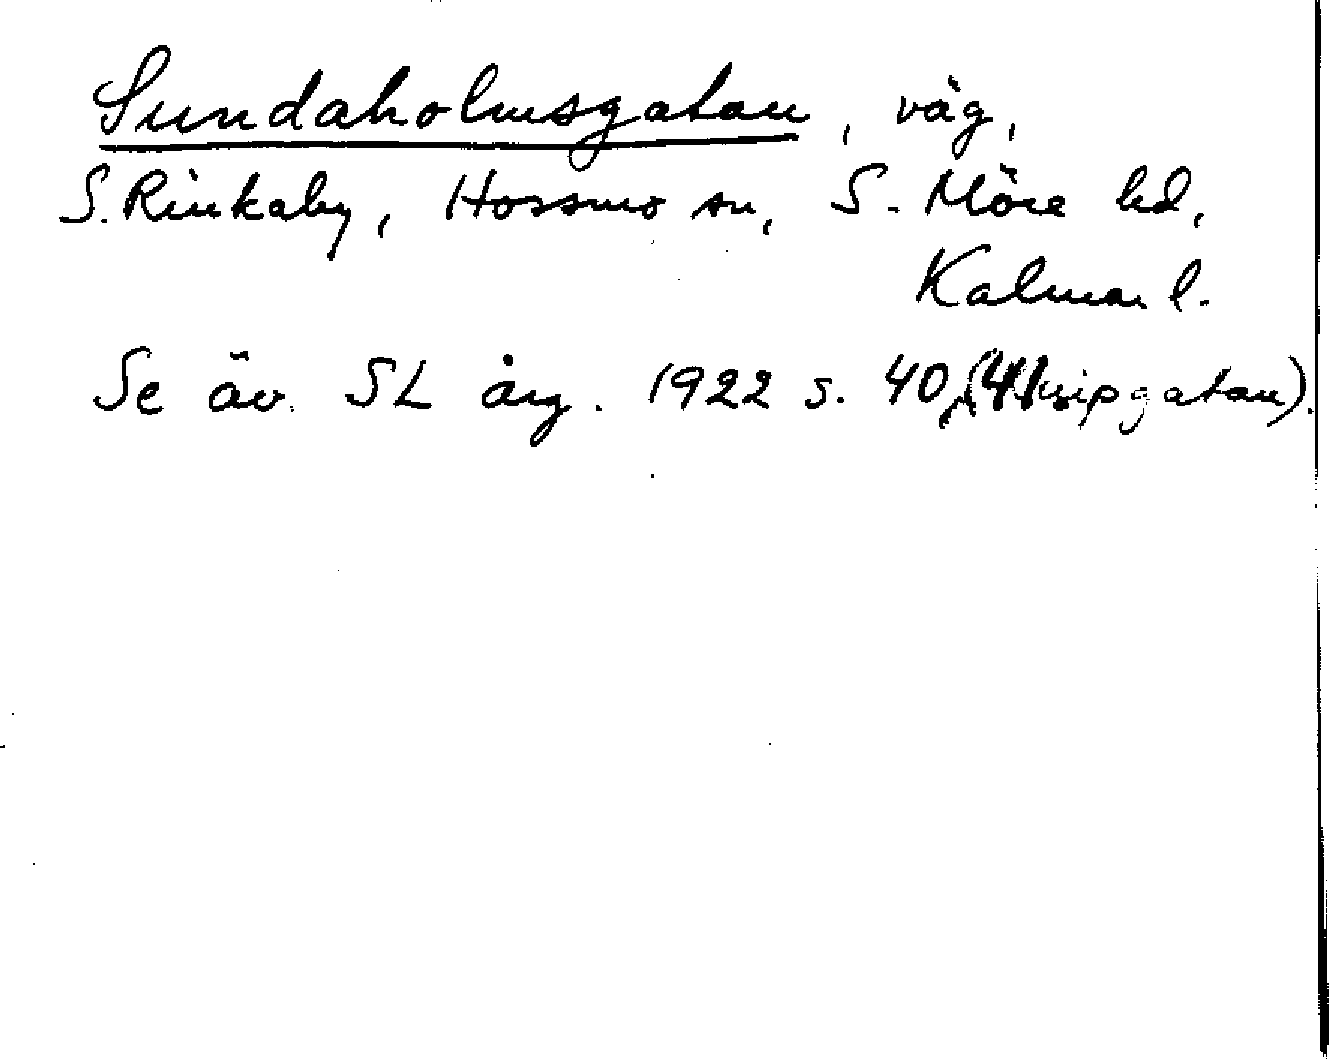 Sundaholmsgatan, väg,
S. Rinkaby, Hossmo sn, S. Möre hd,
Kalmar l.
Se äv. SL årg. 1922 s. 40,